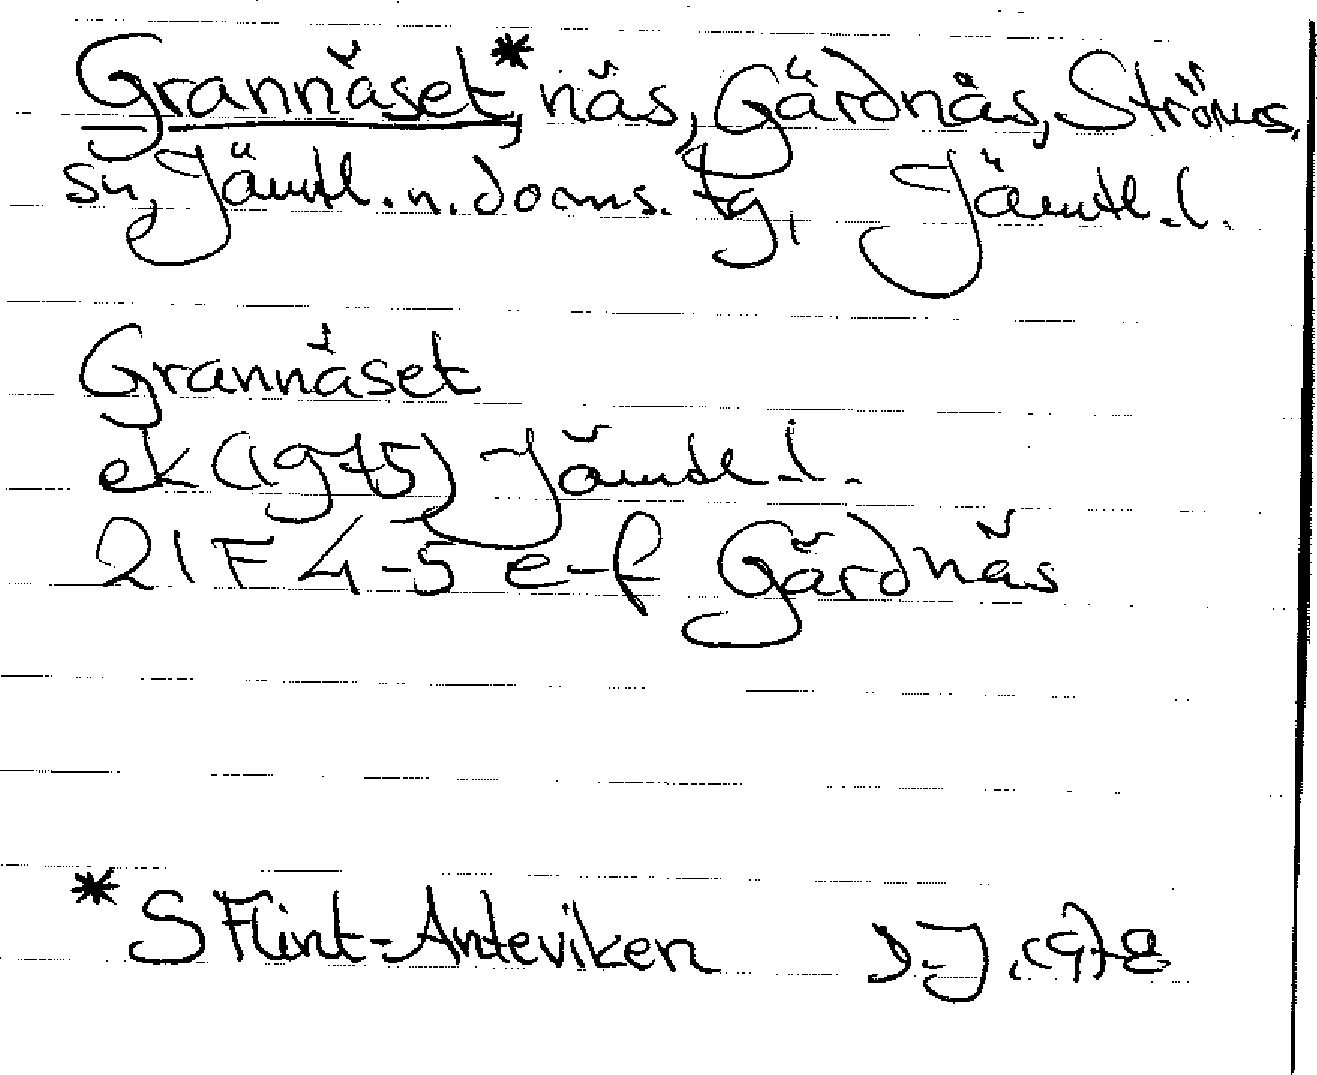 Grannäset*, näs, Gärdnäs, Ströms,
sn, Jämtl. n. doms. tg, Jämtl. l.
Grannäset
ek (1975) Jämtl. l.
21F 4-5 e-f Gärdnäs
* S Flint-Anteviken D.J. 1978